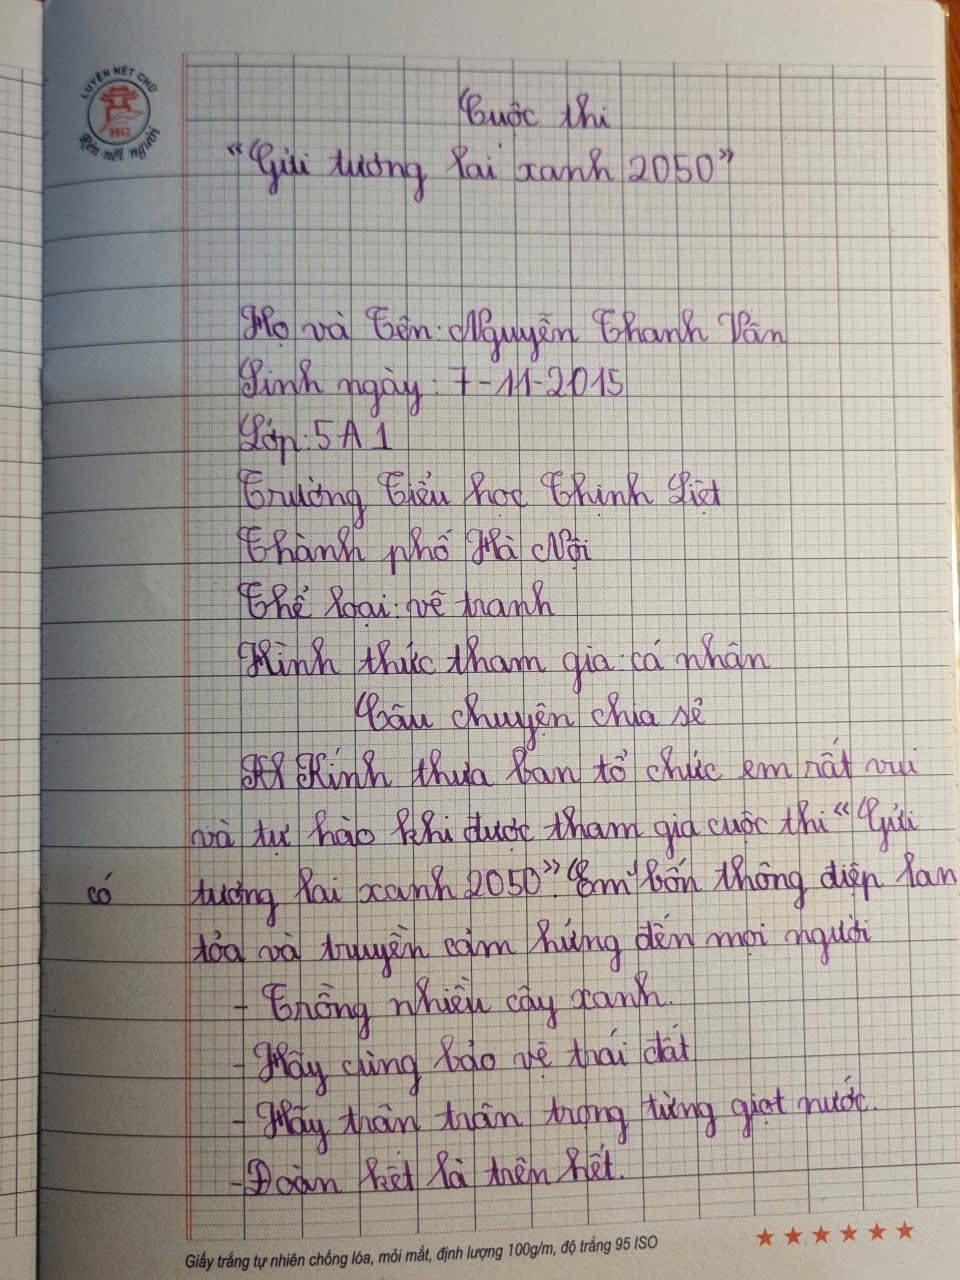 LUYỆN NÉT CHỮ
HG
Rèn nết người
Cuộc thi
“Gửi tương lai xanh 2050”
Họ và Tên: Nguyễn Thanh Vân
Sinh ngày: 7-11-2015
Lớp: 5A1
Trường Tiểu học Thịnh Liệt
Thành phố Hà Nội
Thể loại: vẽ tranh
Hình thức tham gia: cá nhân
Câu chuyện chia sẻ
Kính thưa ban tổ chức em rất vui
và tự hào khi được tham gia cuộc thi “Gửi
tương lai xanh 2050”. Em có bốn thông điệp lan
tỏa và truyền cảm hứng đến mọi người
- Trồng nhiều cây xanh.
- Hãy cùng bảo vệ trái đất
- Hãy trân trân trọng từng giọt nước.
- Đoàn kết là trên hết.
Giấy trắng tự nhiên chống lóa, mỏi mắt, định lượng 100g/m, độ trắng 95 ISO